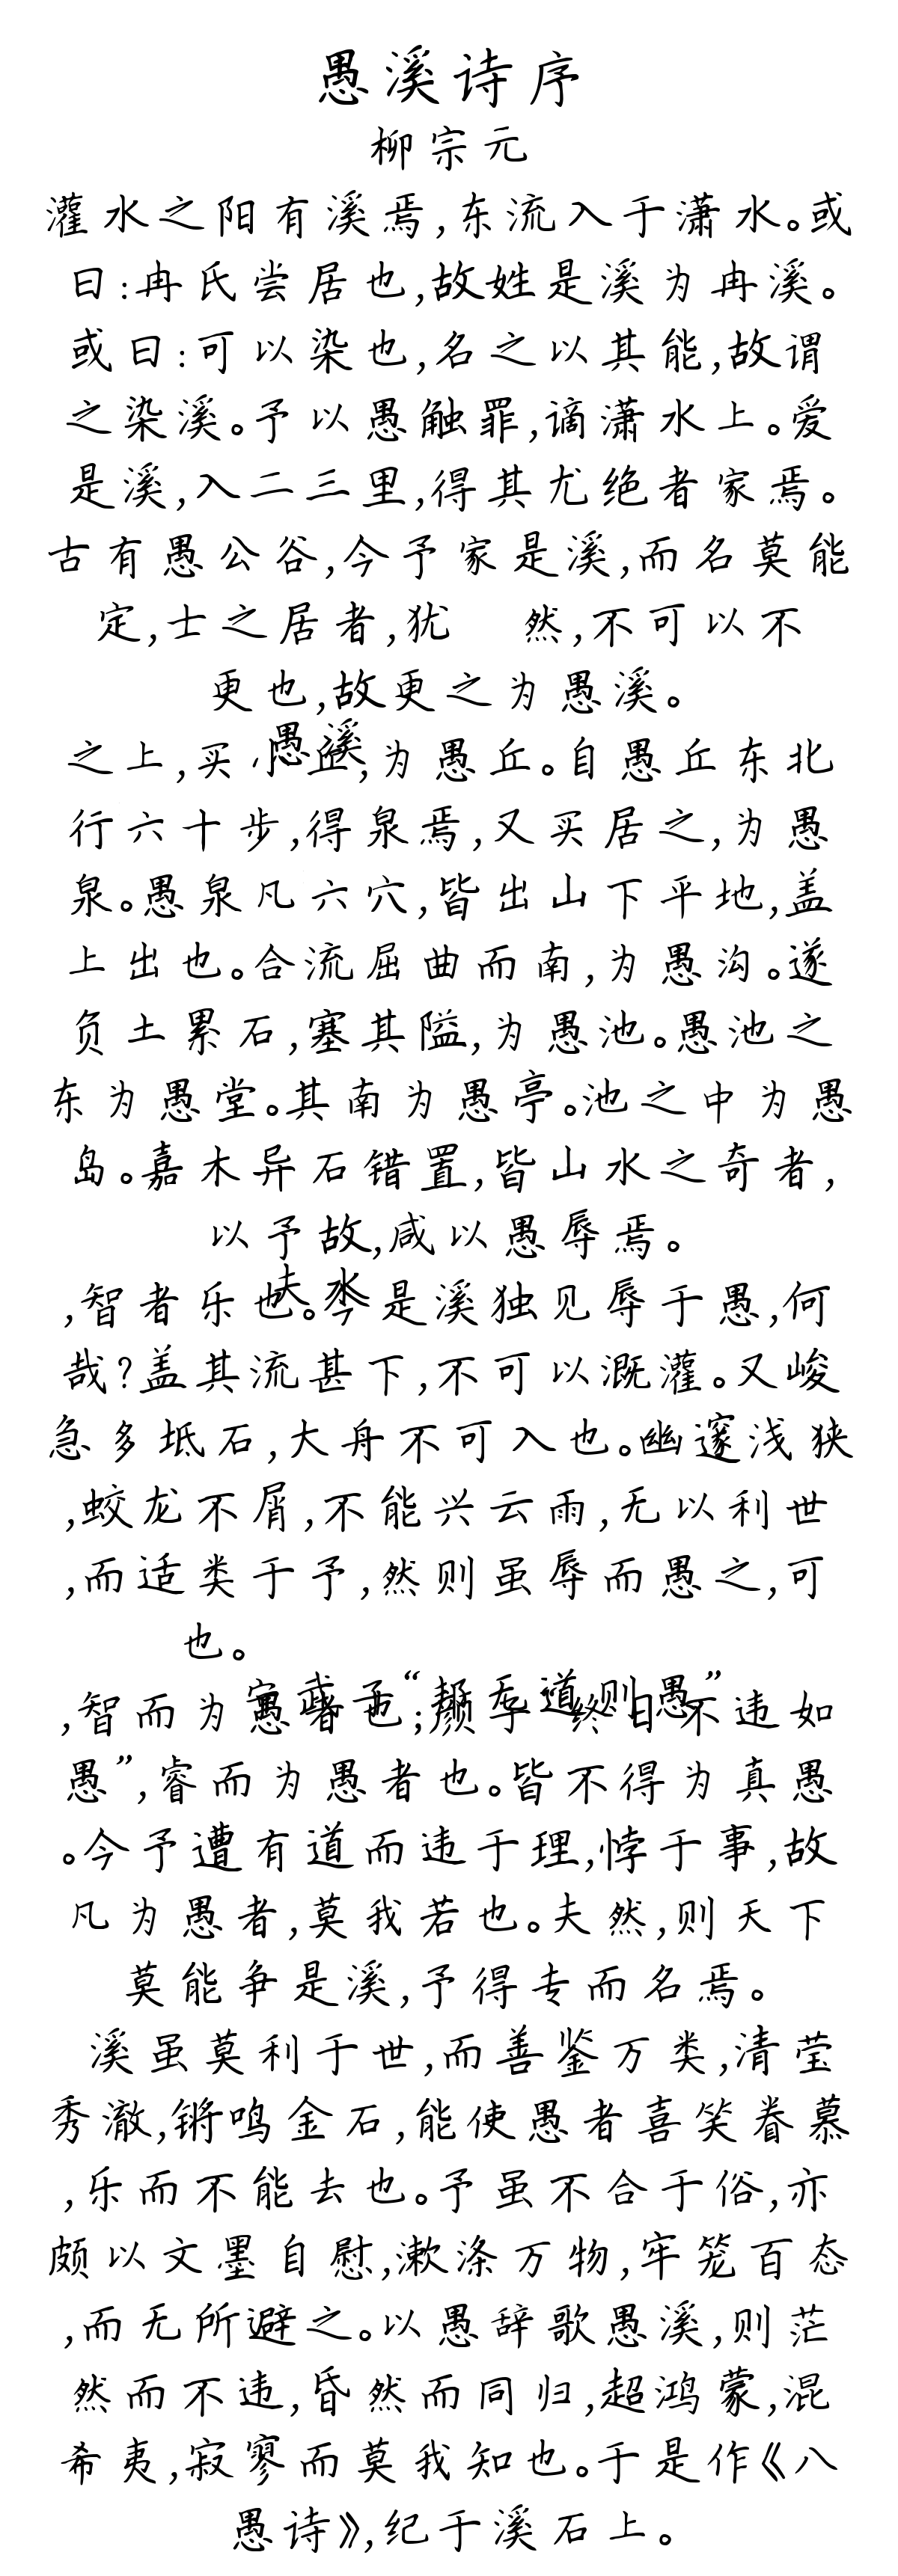 愚溪诗序
柳宗元
灌水之阳有溪焉,东流入于潇水。或
曰:冉氏尝居也,故姓是溪为冉溪。
或曰:可以染也,名之以其能,故谓
之染溪。予以愚触罪,谪潇水上。爱
是溪,入二三里,得其尤绝者家焉。
古有愚公谷,今予家是溪,而名莫能
定,士之居者,犹 然,不可以不
更也,故更之为愚溪。
愚溪
之上,买小丘,为愚丘。自愚丘东北
行六十步,得泉焉,又买居之,为愚
泉。愚泉凡六穴,皆出山下平地,盖
上出也。合流屈曲而南,为愚沟。遂
负土累石,塞其隘,为愚池。愚池之
东为愚堂。其南为愚亭。池之中为愚
岛。嘉木异石错置,皆山水之奇者,
以予故,咸以愚辱焉。
夫水
,智者乐也。今是溪独见辱于愚,何
哉?盖其流甚下,不可以溉灌。又峻
急多坻石,大舟不可入也。幽邃浅狭
,蛟龙不屑,不能兴云雨,无以利世
,而适类于予,然则虽辱而愚之,可
也。
宁武子“邦无道则愚”
,智而为愚者也;颜子“终日不违如
愚”,睿而为愚者也。皆不得为真愚
。今予遭有道而违于理,悖于事,故
凡为愚者,莫我若也。夫然,则天下
莫能争是溪,予得专而名焉。
溪虽莫利于世,而善鉴万类,清莹
秀澈,锵鸣金石,能使愚者喜笑眷慕
,乐而不能去也。予虽不合于俗,亦
颇以文墨自慰,漱涤万物,牢笼百态
,而无所避之。以愚辞歌愚溪,则茫
然而不违,昏然而同归,超鸿蒙,混
希夷,寂寥而莫我知也。于是作《八
愚诗》,纪于溪石上。